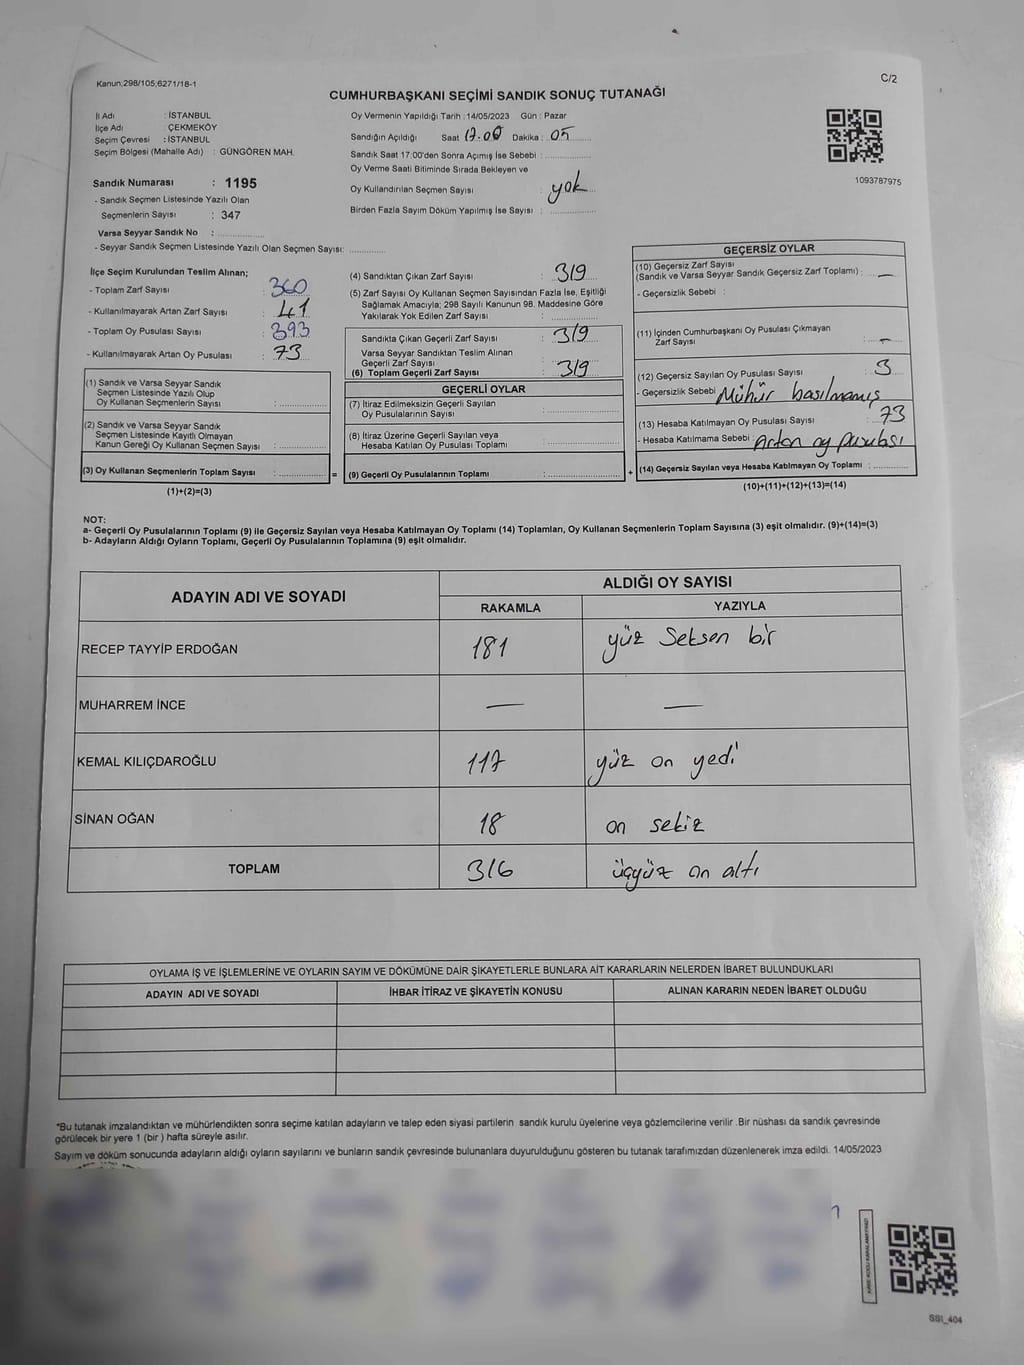 Kanun,298/105,6271/18-1
C/2
CUMHURBAŞKANI SEÇİMİ SANDIK SONUÇ TUTANAĞI
İl Adı : İSTANBUL
İlçe Adı : ÇEKMEKÖY
Seçim Çevresi : İSTANBUL
Seçim Bölgesi (Mahalle Adı) : GÜNGÖREN MAH.
Sandık Numarası : 1195
- Sandık Seçmen Listesinde Yazılı Olan
Seçmenlerin Sayısı : 347
Varsa Seyyar Sandık No : ..............
- Seyyar Sandık Seçmen Listesinde Yazılı Olan Seçmen Sayısı: ..............
Oy Vermenin Yapıldığı Tarih : 14/05/2023 Gün : Pazar
Sandığın Açıldığı Saat 17.00 Dakika : 05
Sandık Saat 17:00'den Sonra Açımış İse Sebebi : ..............
Oy Verme Saati Bitiminde Sırada Bekleyen ve
Oy Kullandırılan Seçmen Sayısı : yok
Birden Fazla Sayım Döküm Yapılmış İse Sayısı : ..............
1093787975
İlçe Seçim Kurulundan Teslim Alınan;
- Toplam Zarf Sayısı : 360
- Kullanılmayarak Artan Zarf Sayısı : 41
- Toplam Oy Pusulası Sayısı : 393
- Kullanılmayarak Artan Oy Pusulası : 73
(1) Sandık ve Varsa Seyyar Sandık
Seçmen Listesinde Yazılı Olup
Oy Kullanan Seçmenlerin Sayısı : ..............
(2) Sandık ve Varsa Seyyar Sandık
Seçmen Listesinde Kayıtlı Olmayan
Kanun Gereği Oy Kullanan Seçmen Sayısı : ..............
(3) Oy Kullanan Seçmenlerin Toplam Sayısı : ..............
(1)+(2)=(3)
=
(4) Sandıktan Çıkan Zarf Sayısı : 319
(5) Zarf Sayısı Oy Kullanan Seçmen Sayısından Fazla İse, Eşitliği
Sağlamak Amacıyla; 298 Sayılı Kanunun 98. Maddesine Göre
Yakılarak Yok Edilen Zarf Sayısı : ..............
Sandıkta Çıkan Geçerli Zarf Sayısı : 319
Varsa Seyyar Sandıktan Teslim Alınan
Geçerli Zarf Sayısı : ..............
(6) Toplam Geçerli Zarf Sayısı : 319
GEÇERLİ OYLAR
(7) İtiraz Edilmeksizin Geçerli Sayılan
Oy Pusulalarının Sayısı : ..............
(8) İtiraz Üzerine Geçerli Sayılan veya
Hesaba Katılan Oy Pusulası Toplamı : ..............
(9) Geçerli Oy Pusulalarının Toplamı : ..............
+
GEÇERSİZ OYLAR
(10) Geçersiz Zarf Sayısı
(Sandık ve Varsa Seyyar Sandık Geçersiz Zarf Toplamı) : —
- Geçersizlik Sebebi :
(11) İçinden Cumhurbaşkanı Oy Pusulası Çıkmayan
Zarf Sayısı : —
(12) Geçersiz Sayılan Oy Pusulası Sayısı : 3
- Geçersizlik Sebebi : Mühür basılmamış
(13) Hesaba Katılmayan Oy Pusulası Sayısı : 73
- Hesaba Katılmama Sebebi : Artan oy pusulası
(14) Geçersiz Sayılan veya Hesaba Katılmayan Oy Toplamı : ..............
(10)+(11)+(12)+(13)=(14)
NOT:
a- Geçerli Oy Pusulalarının Toplamı (9) ile Geçersiz Sayılan veya Hesaba Katılmayan Oy Toplamı (14) Toplamları, Oy Kullanan Seçmenlerin Toplam Sayısına (3) eşit olmalıdır. (9)+(14)=(3)
b- Adayların Aldığı Oyların Toplamı, Geçerli Oy Pusulalarının Toplamına (9) eşit olmalıdır.
ADAYIN ADI VE SOYADI
ALDIĞI OY SAYISI
RAKAMLA YAZIYLA
RECEP TAYYİP ERDOĞAN 181 yüz Seksen bir
MUHARREM İNCE — —
KEMAL KILIÇDAROĞLU 117 yüz on yedi
SİNAN OĞAN 18 on sekiz
TOPLAM 316 üçyüz on altı
OYLAMA İŞ VE İŞLEMLERİNE VE OYLARIN SAYIM VE DÖKÜMÜNE DAİR ŞİKAYETLERLE BUNLARA AİT KARARLARIN NELERDEN İBARET BULUNDUKLARI
ADAYIN ADI VE SOYADI İHBAR İTİRAZ VE ŞİKAYETİN KONUSU ALINAN KARARIN NEDEN İBARET OLDUĞU
*Bu tutanak imzalandıktan ve mühürlendikten sonra seçime katılan adayların ve talep eden siyasi partilerin sandık kurulu üyelerine veya gözlemcilerine verilir .Bir nüshası da sandık çevresinde
görülecek bir yere 1 (bir ) hafta süreyle asılır.
Sayım ve döküm sonucunda adayların aldığı oyların sayılarını ve bunların sandık çevresinde bulunanlara duyurulduğunu gösteren bu tutanak tarafımızdan düzenlenerek imza edildi. 14/05/2023
SSI_404